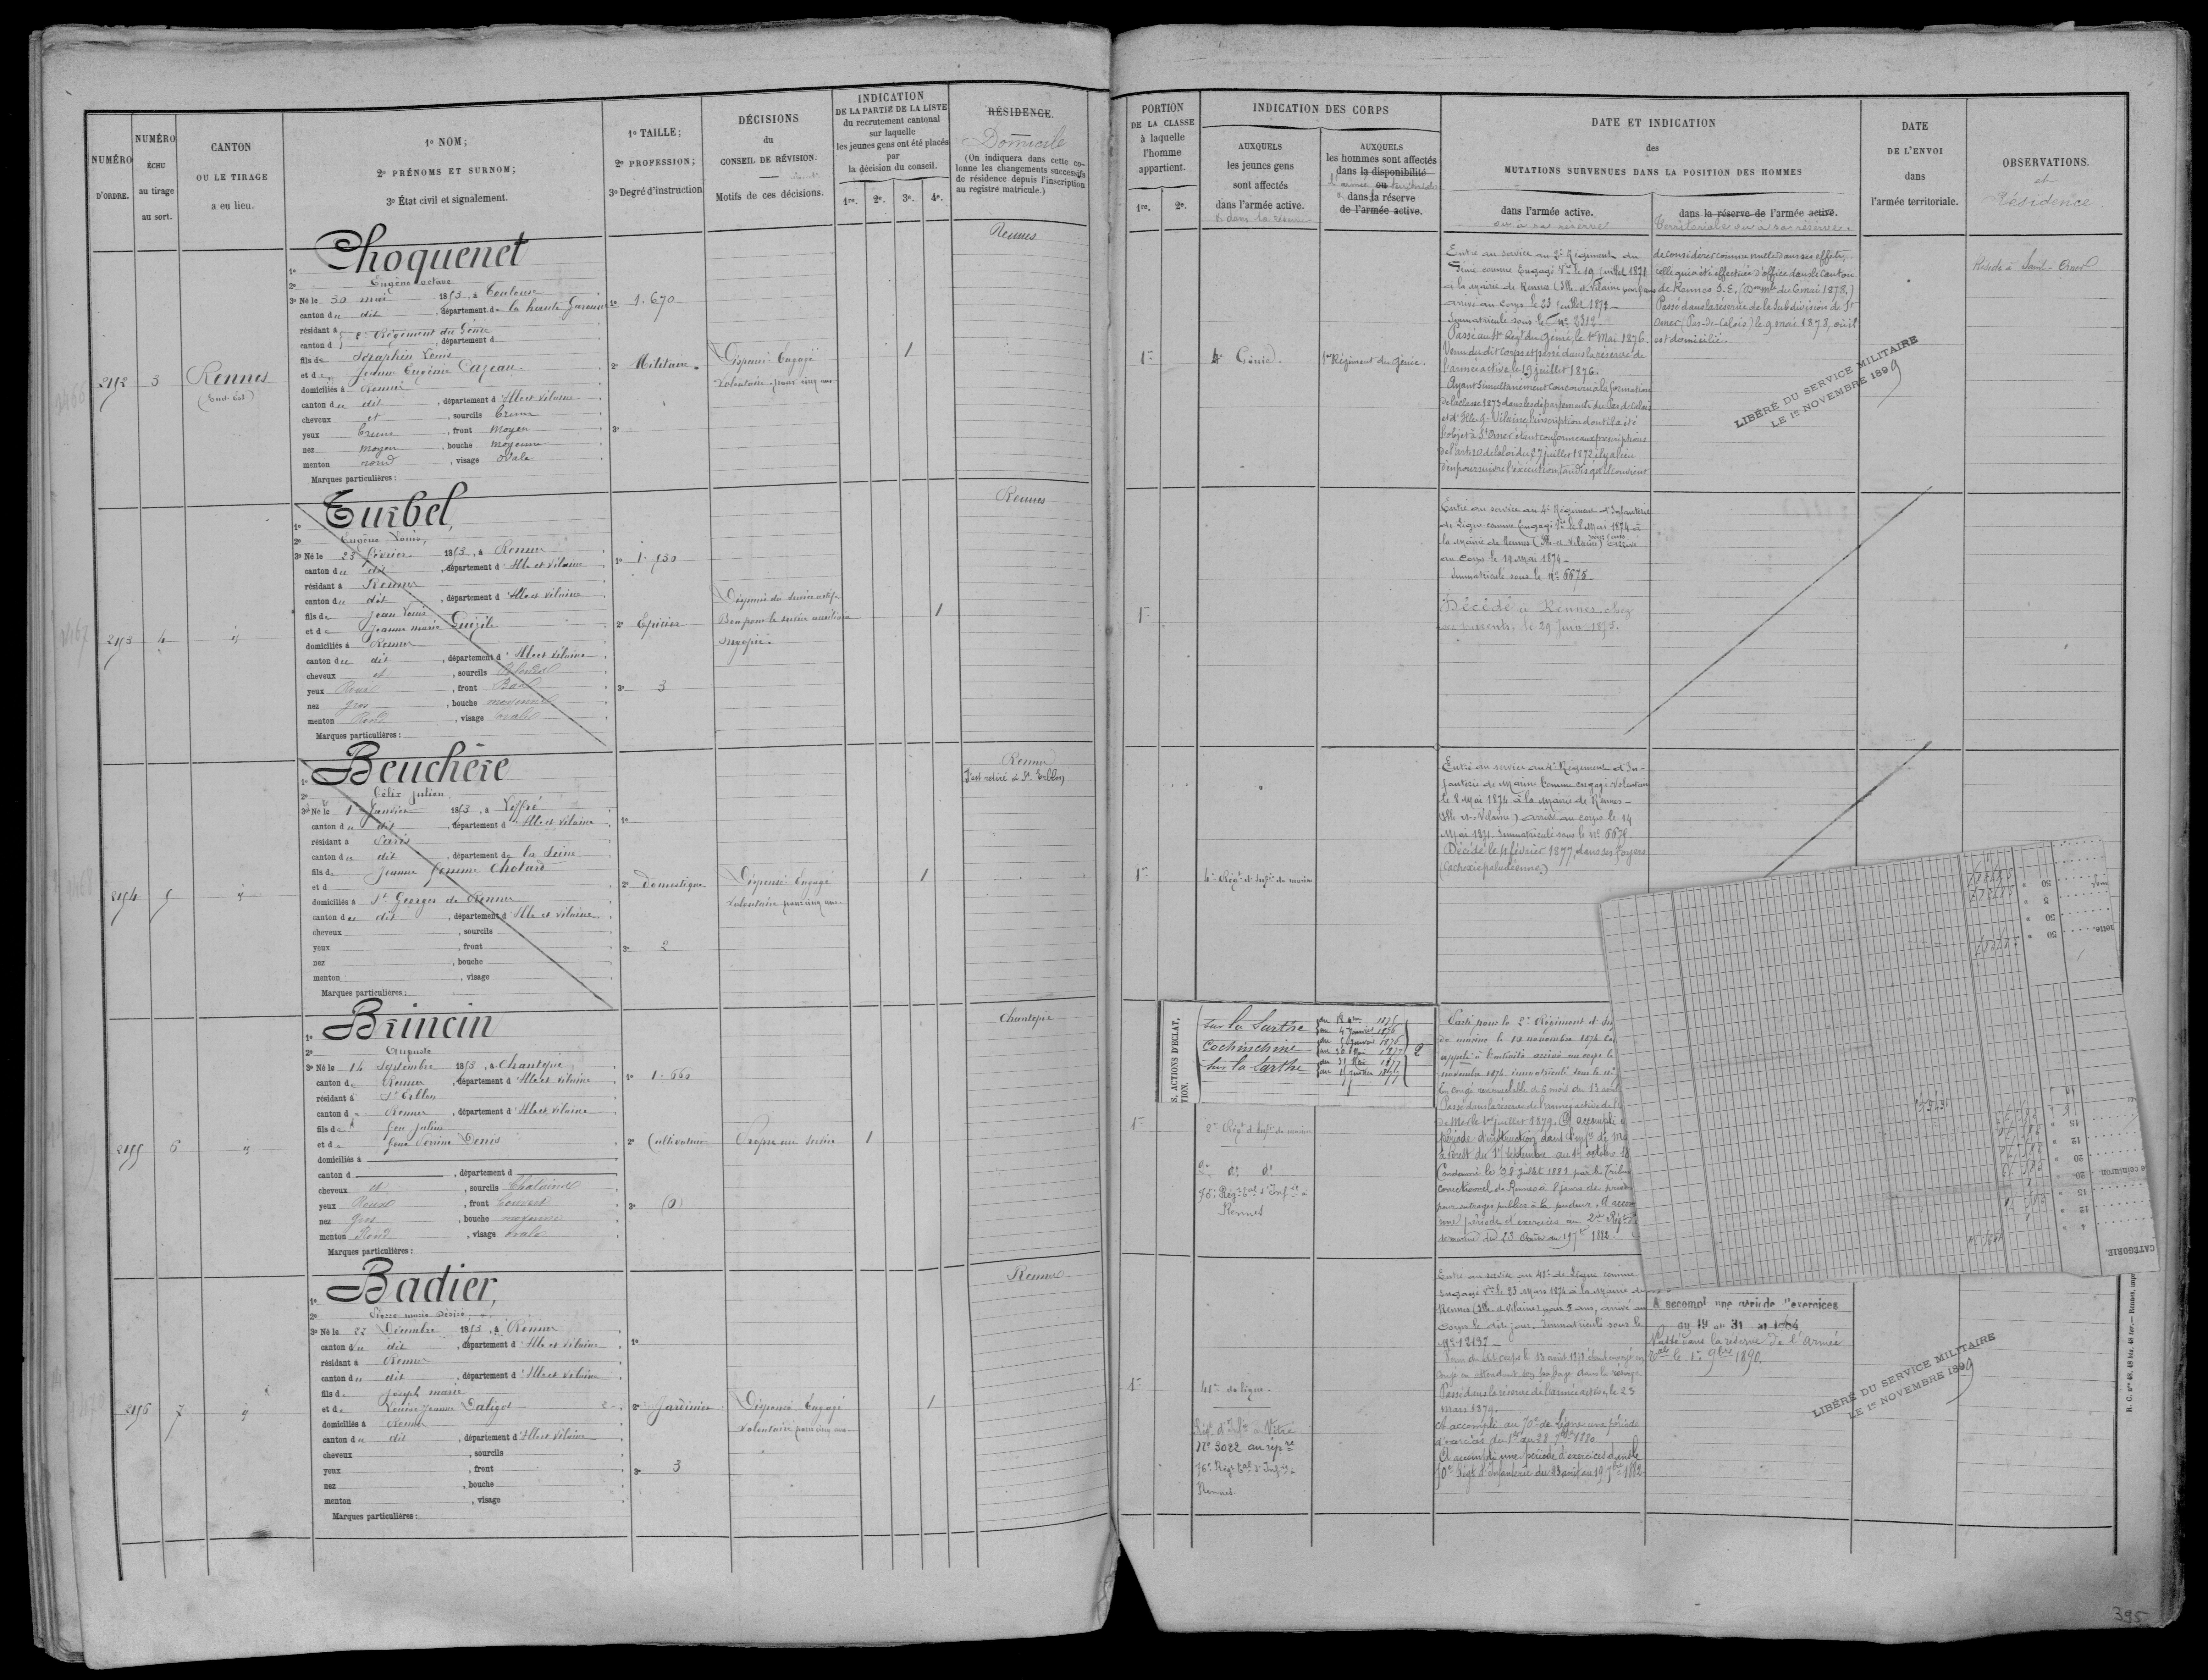 NUMÉRO D'ORDRE.
NUMÉRO ÉCHU au tirage au sort.
CANTON OU LE TIRAGE a eu lieu.
1º NOM;
2º PRÉNOMS ET SURNOM;
3º État civil et signalement.
1º TAILLE;
2º PROFESSION;
3º Degré d'instruction
DÉCISIONS
du
CONSEIL DE RÉVISION.
Motifs de ces décisions.
INDICATION
DE LA PARTIE DE LA LISTE
du recrutement cantonal
sur laquelle
les jeunes gens ont été placés
par
la décision du conseil.
1re. 2e. 3e. 4e.
RÉSIDENCE.
Domicile
(On indiquera dans cette co-
lonne les changements successifs
de résidence depuis l'inscription
au registre matricule.)
PORTION
DE LA CLASSE
à laquelle
l'homme
appartient.
1re. 2e.
INDICATION DES CORPS
AUXQUELS
les jeunes gens
sont affectés
dans l'armée active.
& dans la réserve
AUXQUELS
les hommes sont affectés
dans la disponibilité
ou
dans la réserve
de l'armée active.
DATE ET INDICATION
des
MUTATIONS SURVENUES DANS LA POSITION DES HOMMES
dans l'armée active.
ou à sa réserve
dans la réserve de l'armée active.
Territoriale ou à sa réserve.
DATE
DE L'ENVOI
dans
l'armée territoriale.
OBSERVATIONS.
et
Résidence.
2152
3
Rennes
(Sud-Est)
1º Choquenet
2º Eugène Octave
3º Né le 30 mai 1853, à Toulouse
canton du dit, département de la haute Garonne
résidant à 2e Régiment du Génie
canton d , département d
fils de Séraphin Louis
et de Jeanne Eugénie Cazeau
domiciliés à Rennes
canton du dit, département d'Ille et Vilaine
cheveux et, sourcils bruns
yeux bruns, front moyen
nez moyen, bouche moyenne
menton rond, visage ovale
Marques particulières :
1º 1.670
2º Militaire
3º
Dispensé Engagé
volontaire pour cinq ans
1
Rennes
1re
4e Génie
1er Régiment du Génie.
Entré au service au 2e Régiment du
Génie comme Engagé Vre le 19 juillet 1872
à la mairie de Rennes (Ille et Vilaine) pour 5 ans
arrivé au corps le 23 juillet 1872
Immatriculé sous le Nº 2312.
Passé au 4e Regt du génie, le 1er Mai 1876.
Venu du dit corps et passé dans la réserve de
l'armée active, le 19 juillet 1876.
Ayant simultanément concouru à la formation
de la classe 1873 dans les départements du Pas de Calais
et d'Ille-&-Vilaine, l'inscription dont il a été
l'objet à St Omer étant conforme aux prescriptions
de l'art. 10 de la loi du 27 juillet 1872 il y a lieu
d'en poursuivre l'exécution, tandis qu'il convient
de considérer comme nulle dans ses effets,
celle qui a été effectuée d'office dans le canton
de Rennes S.E. (Don Mlle du 6 mai 1878.)
Passé dans la réserve de la Subdivision de St
Omer (Pas-de-Calais) le 9 mai 1878, où il
est domicilié.
LIBÉRÉ DU SERVICE MILITAIRE
LE 1er NOVEMBRE 1899
Réside à Saint-Omer
2153
4
id
1º Turbel,
2º Eugène Louis,
3º Né le 23 février 1853, à Rennes
canton du dit, département d'Ille et Vilaine
résidant à Rennes
canton du dit, département d'Ille et Vilaine
fils de Jean Louis
et de Jeanne marie
domiciliés à Rennes
canton du dit, département d'Ille et Vilaine
cheveux et, sourcils Blonds
yeux Roux, front Bas
nez gros, bouche moyenne
menton Rond, visage ovale
Marques particulières :
2º Epicier
3º 3
Dispensé du service actif
Bon pour le service auxiliaire
myopie.
1
Rennes
1re
Entré au service au 4e Régiment d'Infanterie
de Ligne comme Engagé Vre le 8 Mai 1874 à
la mairie de Rennes (Ille-et-Vilaine) arrivé
au corps le 19 Mai 1874
Immatriculé sous le Nº 6675
Décédé à Rennes, chez
ses parents, le 29 Juin 1875.
2154
5
id
1º Beuchère
2º Félix Julien
3º Né le 1er Janvier 1853, à Liffré
canton du dit, département d'Ille et Vilaine
résidant à Paris
canton du dit, département de la Seine
fils de Jeanne femme Chotard
et d
domiciliés à St Georges de Rennes
canton du dit, département d'Ille et Vilaine
cheveux , sourcils
yeux , front
nez , bouche
menton , visage
Marques particulières :
1º
2º Domestique
3º 2
Dispensé Engagé
volontaire pour cinq ans
1
Rennes
S'est retiré à St Erblon
1re
4e Régt d'Infie de marine
Entré au service au 4e Régiment d'In-
fanterie de Marine Comme engagé volontaire
le 8 Mai 1874 à la Mairie de Rennes
(Ille-et-Vilaine) arrivé au corps le 14
Mai 1874. Immatriculé sous le Nº
Décédé le 11 février 1877, dans ses foyers
(Cachexie paludéenne)
2155
6
id
1º Brincin
2º Auguste
3º Né le 14 Septembre 1853, à Chantepie
canton de Rennes, département d'Ille et Vilaine
résidant à St Erblon
canton de Rennes, département d'Ille et Vilaine
fils de feu Julien
et de feue Denis
domiciliés à
canton d , département d
cheveux et, sourcils Chatains
yeux Roux, front Couvert
nez gros, bouche moyenne
menton Rond, visage ovale
Marques particulières :
1º 1.660
2º Cultivateur
3º (0)
Propre au service
1
Chantepie
S, ACTIONS D'ÉCLAT,
TION.
Sur la Sarthe
Cochinchine
Sur la Sarthe
2
1re
2e Régt d'Infie de marine
dº dº
76e Régt tal d'Infie à
Rennes
Parti pour le 2e Régiment d'In
de marine le 10 novembre 1874
appelé à l'activité arrivé au corps le
novembre 1874 immatriculé sous le nº
En congé renouvelable de 6 mois du 13 août
Passé dans la réserve de l'armée active de l'
de Mer le 1er juillet 1879. A accompli
période d'instruction dans l'infie de Ma
à Brest du 1er Septembre au 1er octobre
Condamné le 28 juillet 1881 par le Tribu
correctionnel de Rennes à 8 jours de prison
pour outrages publics à la pudeur. A accom
une période d'exercices au 2e Régt d'
de marine du 23 Août au 19 7bre 1882
CATÉGORIE.
2156
7
id
1º Badier,
2º Pierre marie Désiré
3º Né le 22 Décembre 1853, à Rennes
canton du dit, département d'Ille et Vilaine
résidant à Rennes
canton du dit, département d'Ille et Vilaine
fils de Joseph marie
et de Louise Jeanne Daligot
domiciliés à Rennes
canton du dit, département d'Ille et Vilaine
cheveux , sourcils
yeux , front
nez , bouche
menton , visage
Marques particulières :
1º
2º Jardinier
3º 3
Dispensé Engagé
volontaire pour cinq ans
1
Rennes
1re
41e de ligne
Régt d'Infie à Vitré
Nº 3022 au répre
76e Régt tal d'Infie à
Rennes
Entré au service au 41e de Ligne comme
engagé Vre le 23 Mars 1874 à la Mairie de
Rennes (Ille-et-Vilaine) pour 5 ans, arrivé au
corps le dit jour. Immatriculé sous le
Nº 12137
Venu du dit corps le 13 août 1878 étant envoyé en
congé en attendant son passage dans la réserve
Passé dans la réserve de l'armée active, le 23
mars 1879.
A accompli au 70e de Ligne une période
d'exercices du 1er au 28 7bre 1880
A accompli une période d'exercices dans le
70e Régt d'Infanterie du 23 août au 19 7bre 1882
A accompl une période d'exercices
du 19 au 31 1884
Passé dans la réserve de l'Armée
tale le 1er 9bre 1890.
LIBÉRÉ DU SERVICE MILITAIRE
LE 1er NOVEMBRE 1899
395